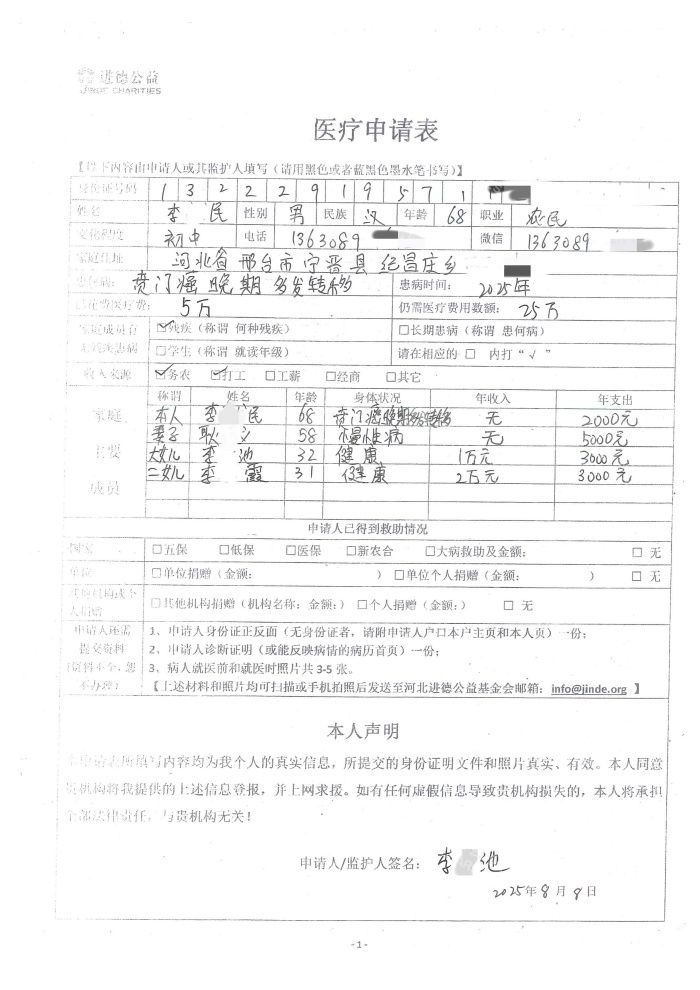 进德公益
JINDE CHARITIES
医疗申请表
【以下内容由申请人或其监护人填写（请用黑色或者蓝黑色墨水笔书写）】
身份证号码 1 3 2 2 2 9 1 9 5 7 1 1
姓名 李 民 性别 男 民族 汉 年龄 68 职业 农民
文化程度 初中 电话 1363089 微信 1363089
家庭住址 河北省邢台市宁晋县纪昌庄乡
所患病： 贲门癌晚期 多发转移 患病时间： 2025年
已花费医疗费： 5万 仍需医疗费用数额： 25万
家庭成员有 ☑残疾（称谓 何种残疾） □长期患病（称谓 患何病）
无残疾患病 □学生（称谓 就读年级） 请在相应的 □ 内打“√”
收入来源 ☑务农 ☑打工 □工薪 □经商 □其它
家庭主要成员 称谓 姓名 年龄 身体状况 年收入 年支出
本人 李 民 68 贲门癌晚期多发转移 无 2000元
妻子 耿 文 58 慢性病 无 5000元
大女儿 李 池 32 健康 1万元 3000元
二女儿 李 霞 31 健康 2万元 3000元
申请人已得到救助情况
国家 □五保 □低保 □医保 □新农合 □大病救助及金额： □ 无
单位 □单位捐赠（金额： ） □单位个人捐赠（金额： ） □ 无
其他机构或个人捐赠 □其他机构捐赠（机构名称；金额：） □个人捐赠（金额：） □ 无
申请人还需 1、申请人身份证正反面（无身份证者，请附申请人户口本户主页和本人页）一份；
提交资料 2、申请人诊断证明（或能反映病情的病历首页）一份；
（资料不全，恕 3、病人就医前和就医时照片共 3-5 张。
不办理） 【上述材料和照片均可扫描或手机拍照后发送至河北进德公益基金会邮箱：info@jinde.org 】
本人声明
本申请表所填写内容均为我个人的真实信息，所提交的身份证明文件和照片真实、有效。本人同意
贵机构将我提供的上述信息登报，并上网求援。如有任何虚假信息导致贵机构损失的，本人将承担
全部法律责任，与贵机构无关！
申请人/监护人签名： 李 池
2025年 8 月 8 日
- 1 -